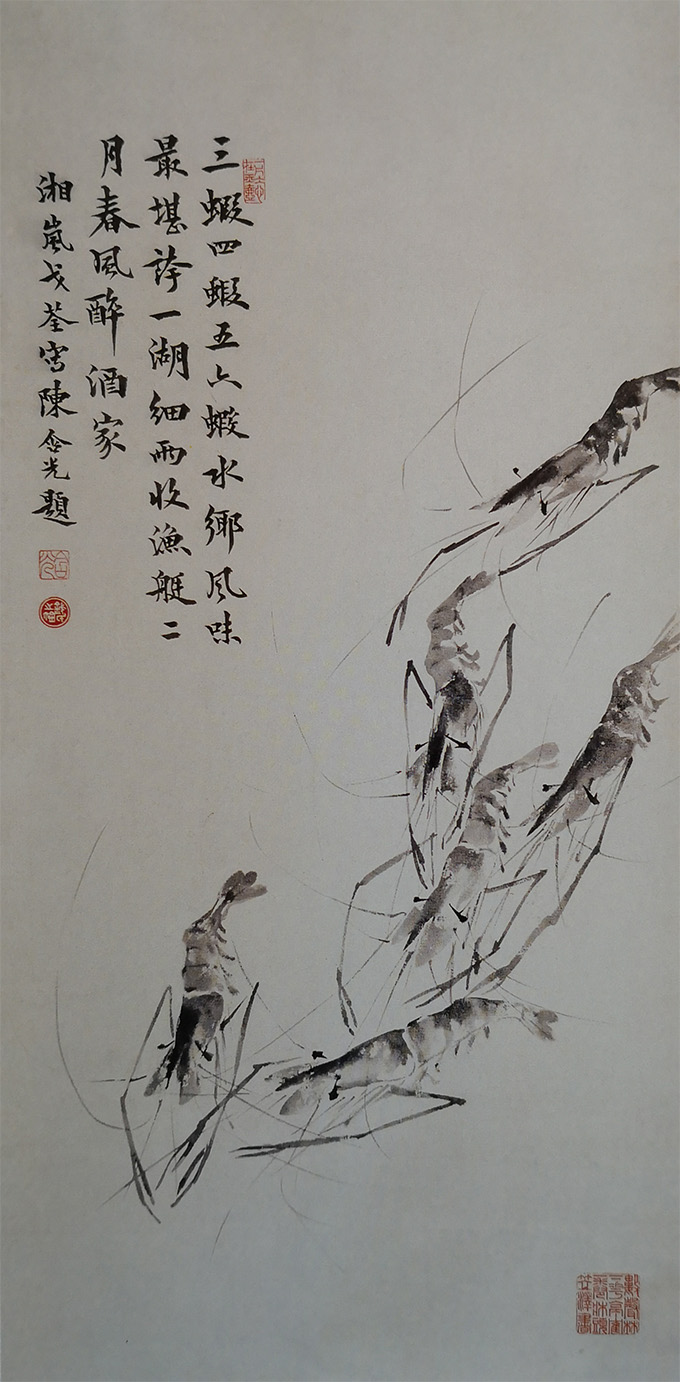 三蝦四蝦五六蝦水鄉風味
最堪誇一湖細雨收漁艇二
月春風醉酒家
湘嵐戈荃寫陳含光題